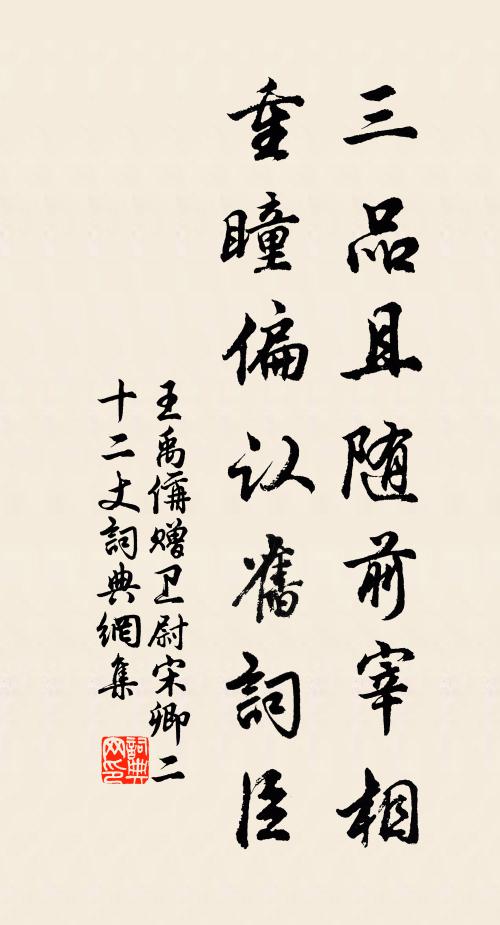 三品且随前宰相
重瞳偏认舊詞臣
王禹偁赠卫尉宋卿二
十二丈詞典網集
詞典
网印